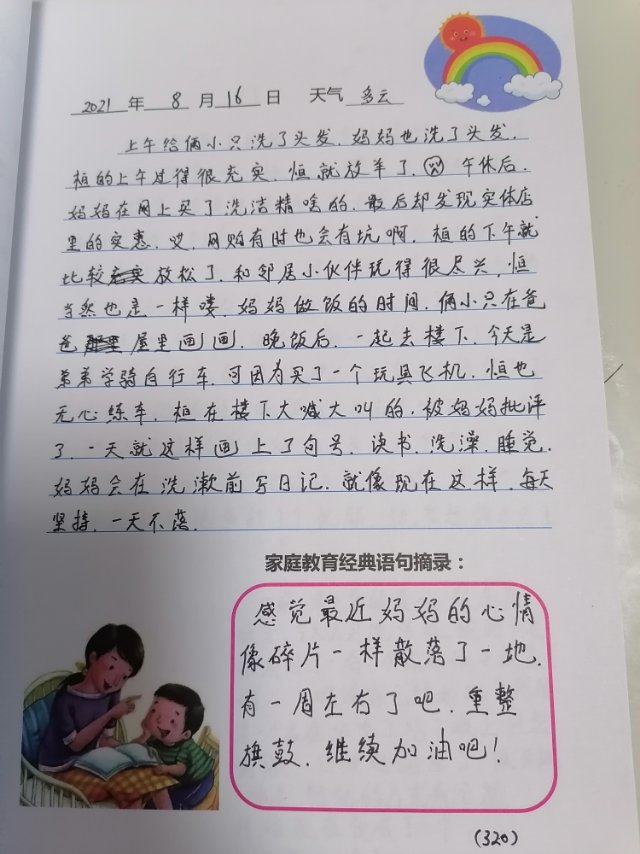 2021 年 8 月 16 日 天气 多云
上午给俩小只洗了头发，妈妈也洗了头发，
桓的上午过得很充实，恒就放羊了。午休后，
妈妈在网上买了洗洁精啥的，最后却发现实体店
里的实惠，哎，网购有时也会有坑啊，桓的下午就
比较放松了，和邻居小伙伴玩得很尽兴，恒
当然也是一样喽，妈妈做饭的时间，俩小只在爸
爸屋里画画，晚饭后，一起去楼下，今天是
弟弟学骑自行车，可因为买了一个玩具飞机，恒也
无心练车，桓在楼下大喊大叫的，被妈妈批评
了，一天就这样画上了句号，读书，洗澡，睡觉，
妈妈会在洗漱前写日记，就像现在这样，每天
坚持，一天不落，
家庭教育经典语句摘录：
感觉最近妈妈的心情
像碎片一样散落了一地，
有一周左右了吧，重整
旗鼓，继续加油吧！
(320)